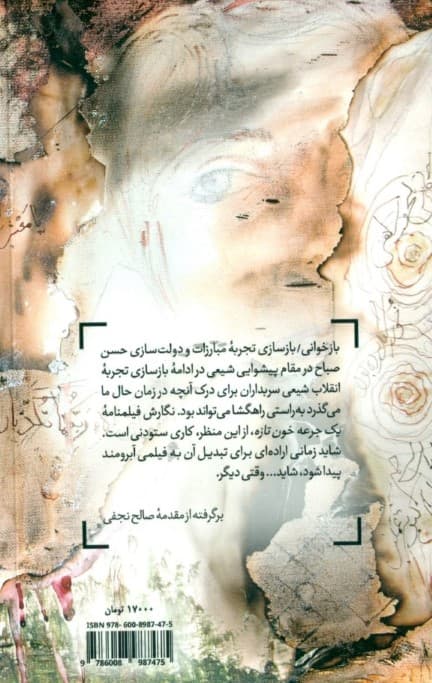 بازخوانی/بازسازی تجربهٔ مبارزات و دولت‌سازی حسن
صباح در مقام پیشوایی شیعی در ادامهٔ بازسازی تجربهٔ
انقلاب شیعی سربداران برای درک آنچه در زمان حال ما
می‌گذرد به‌راستی راهگشا می‌تواند بود. نگارش فیلمنامهٔ
یک جرعه خون تازه، از این منظر، کاری ستودنی است.
شاید زمانی اراده‌ای برای تبدیل آن به فیلمی آبرومند
پیدا شود، شاید... وقتی دیگر.
برگرفته از مقدمهٔ صالح نجفی
۱۷۰۰۰ تومان
ISBN 978- 600-8987-47-5
9 786008 987475